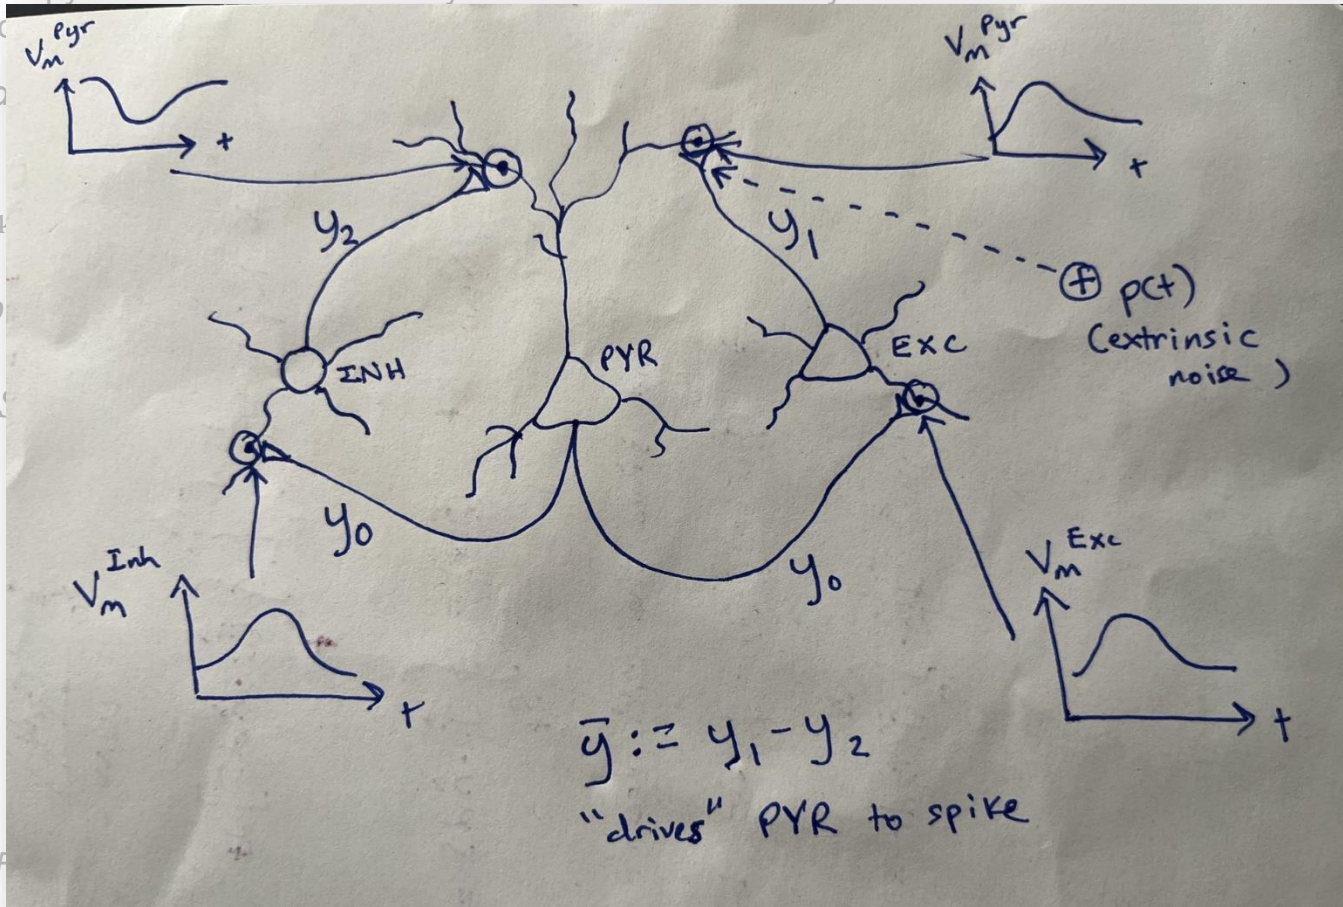 V_m^Pyr
t
V_m^Pyr
t
y₂
y₁
⊕ p(t)
(extrinsic
noise)
INH
PYR
EXC
y₀
y₀
V_m^Inh
t
V_m^Exc
t
ȳ := y₁ - y₂
"drives" PYR to spike